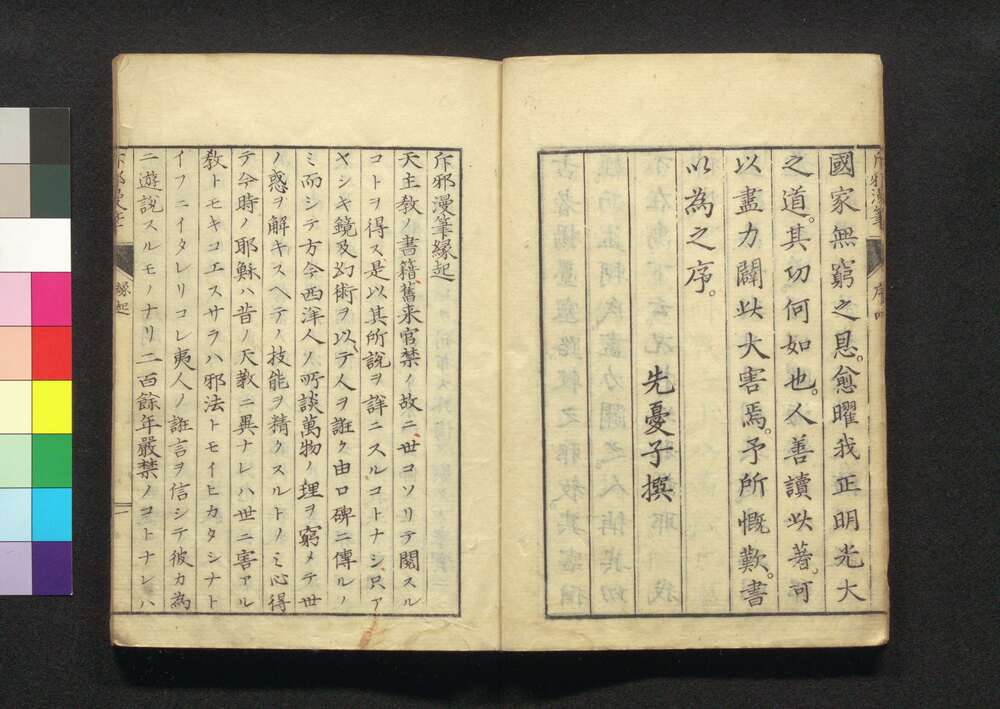 國家無窮之恩。愈曜我正明光大
之道。其功何如也。人善讀此著。可
以盡力闢此大害焉。予所慨歎。書
以為之序。
先憂子撰
斥邪漫筆緣起
天主教ノ書籍舊来官禁ノ故ニ世コソリテ閲スル
コトヲ得ス是以其所說ヲ詳ニスルコトナシ只ア
ヤシキ鏡及幻術ヲ以テ人ヲ誑ク由口碑ニ傳ルノ
ミ而シテ方今西洋人ノ所談萬物ノ理ヲ窮メテ世
ノ惑ヲ解キスヘテノ技能ヲ精クスルトノミ心得
テ今時ノ耶穌ハ昔ノ天教ニ異ナレハ世ニ害アル
教トモキコエスサラハ邪法トモイヒカタシナト
イフニイタレリコレ夷人ノ誑言ヲ信シテ彼カ為
ニ遊說スルモノナリ二百餘年嚴禁ノコトナレハ
緣起
一